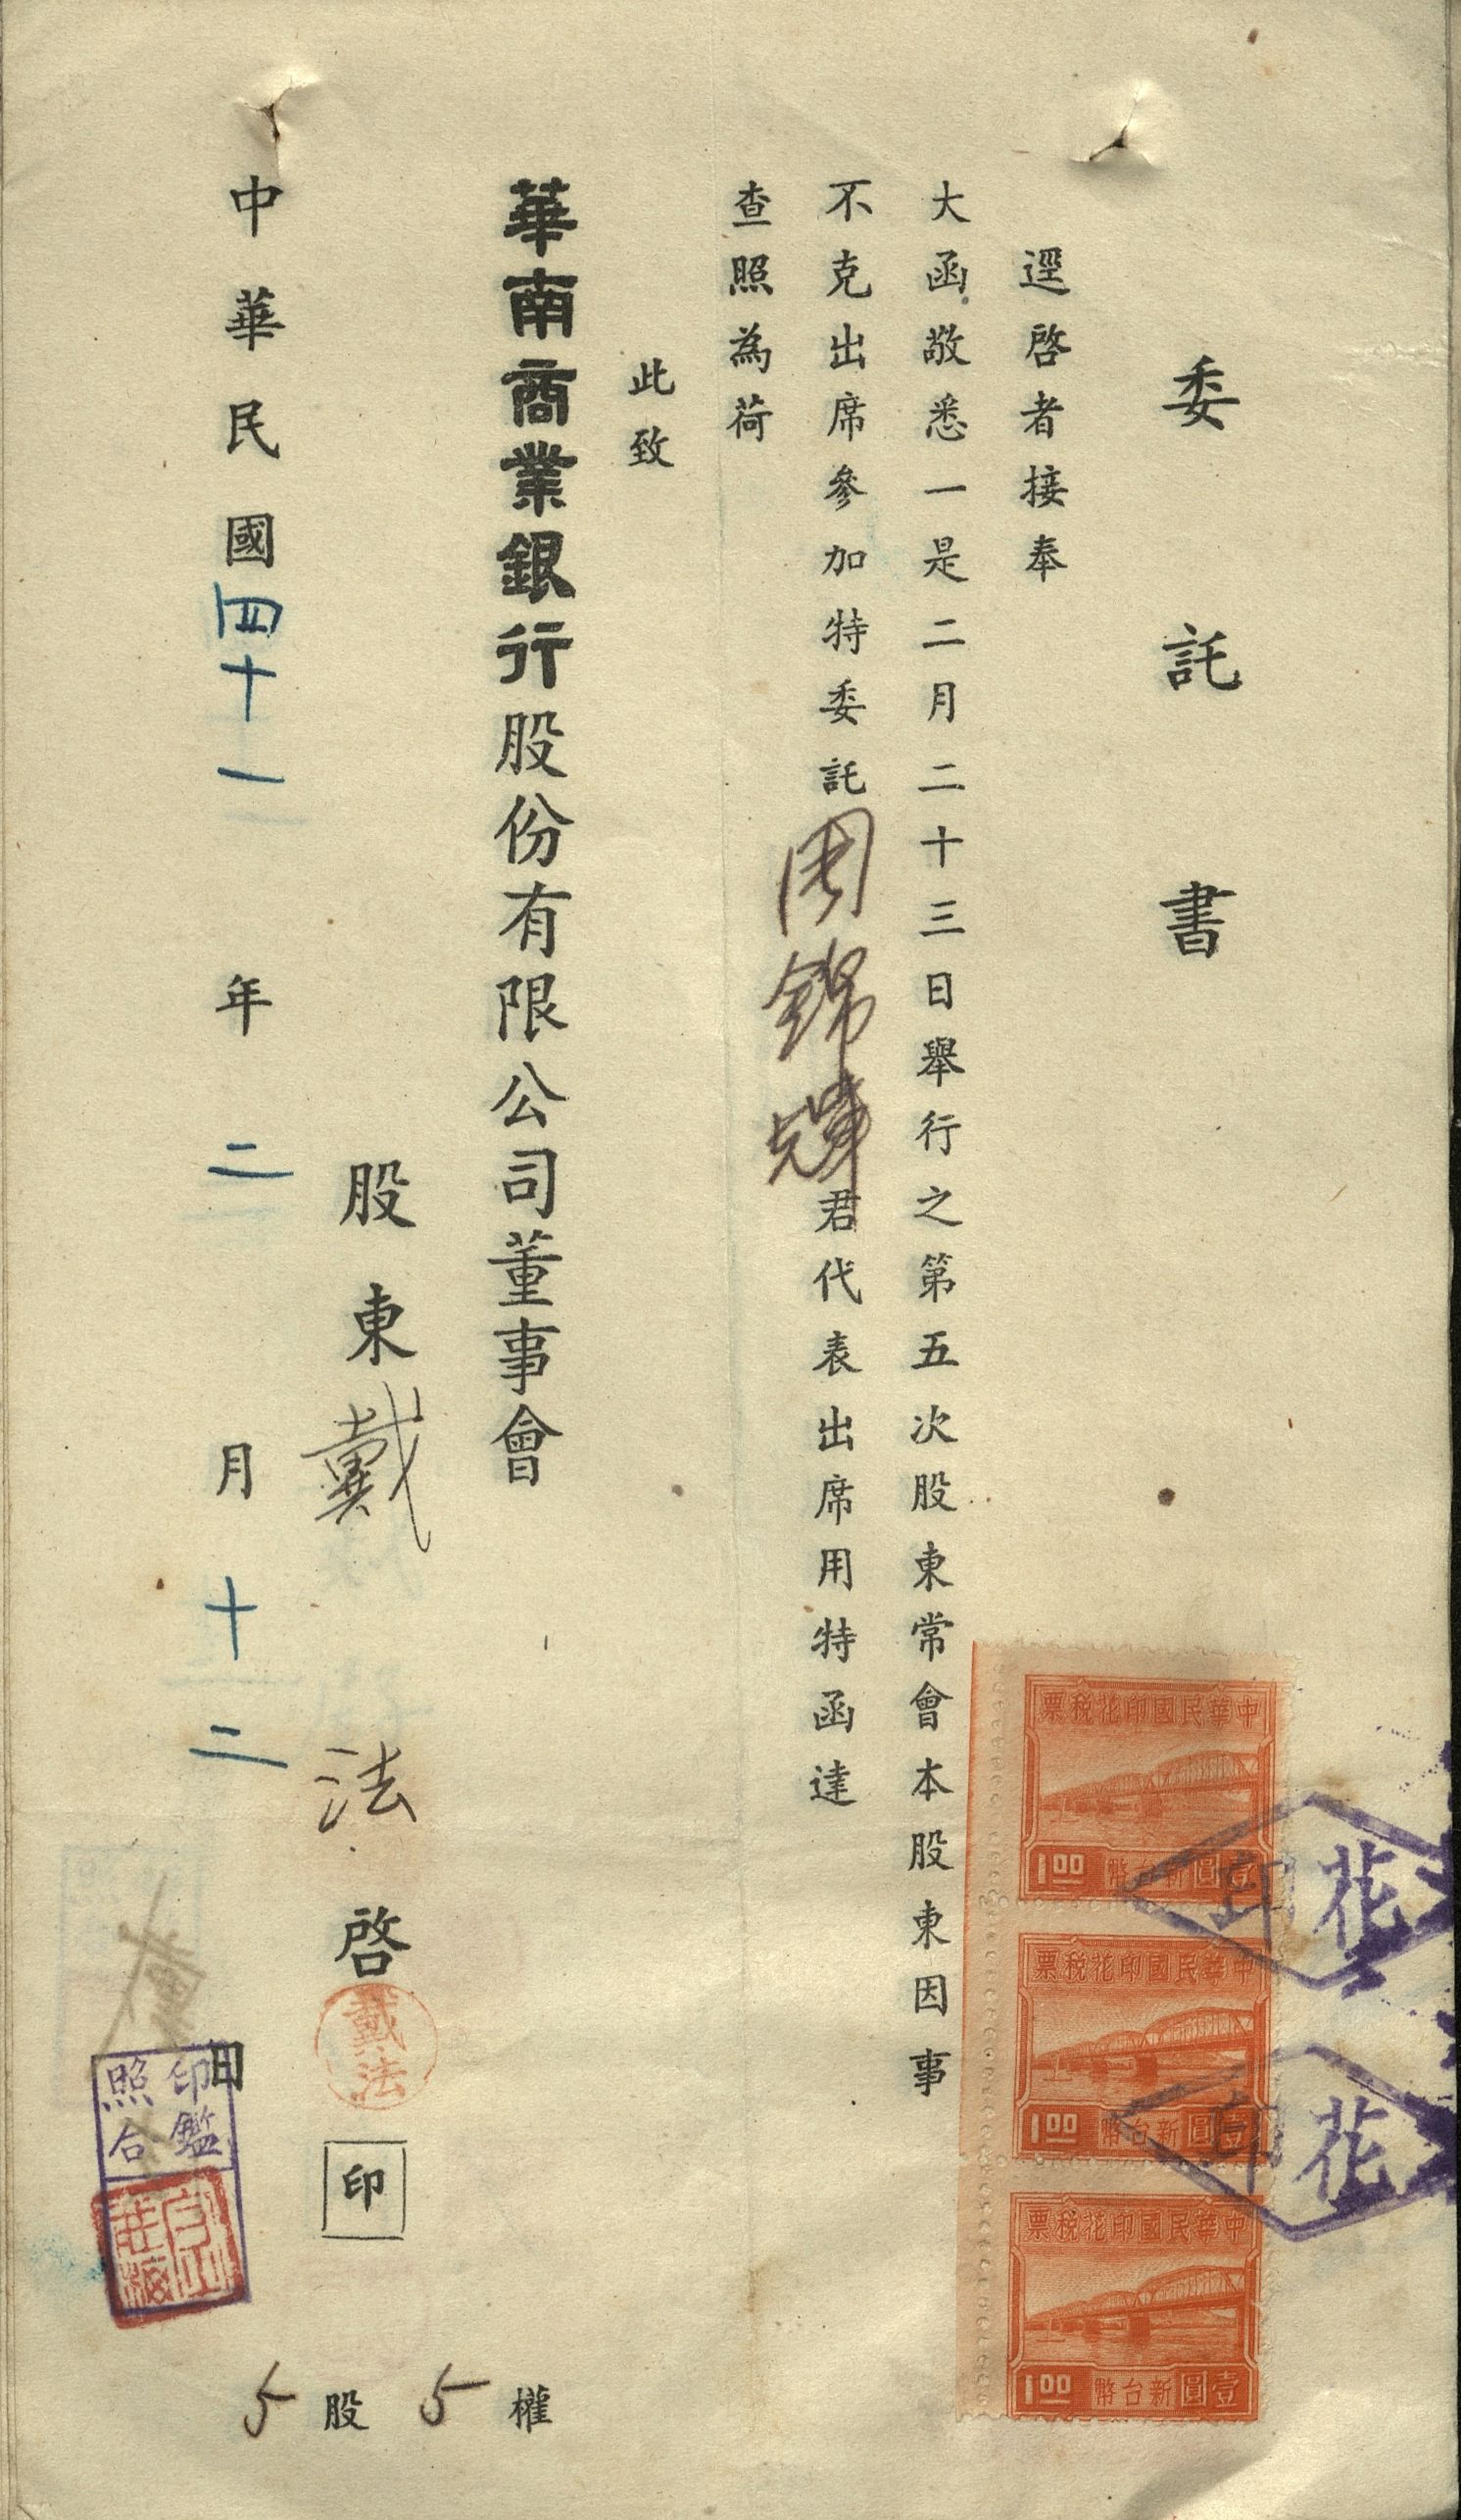 委託書
逕啓者接奉
大函敬悉一是二月二十三日舉行之第五次股東常會本股東因事
不克出席參加特委託周錦輝君代表出席用特函達
查照為荷
此致
華南商業銀行股份有限公司董事會
股東戴法啓
戴法
印
中華民國四十一年二月十二日
印鑑
照合
5股5權
中華民國印花稅票
1.00
壹圓新台幣
中華民國印花稅票
1.00
壹圓新台幣
中華民國印花稅票
1.00
壹圓新台幣
花印
花印